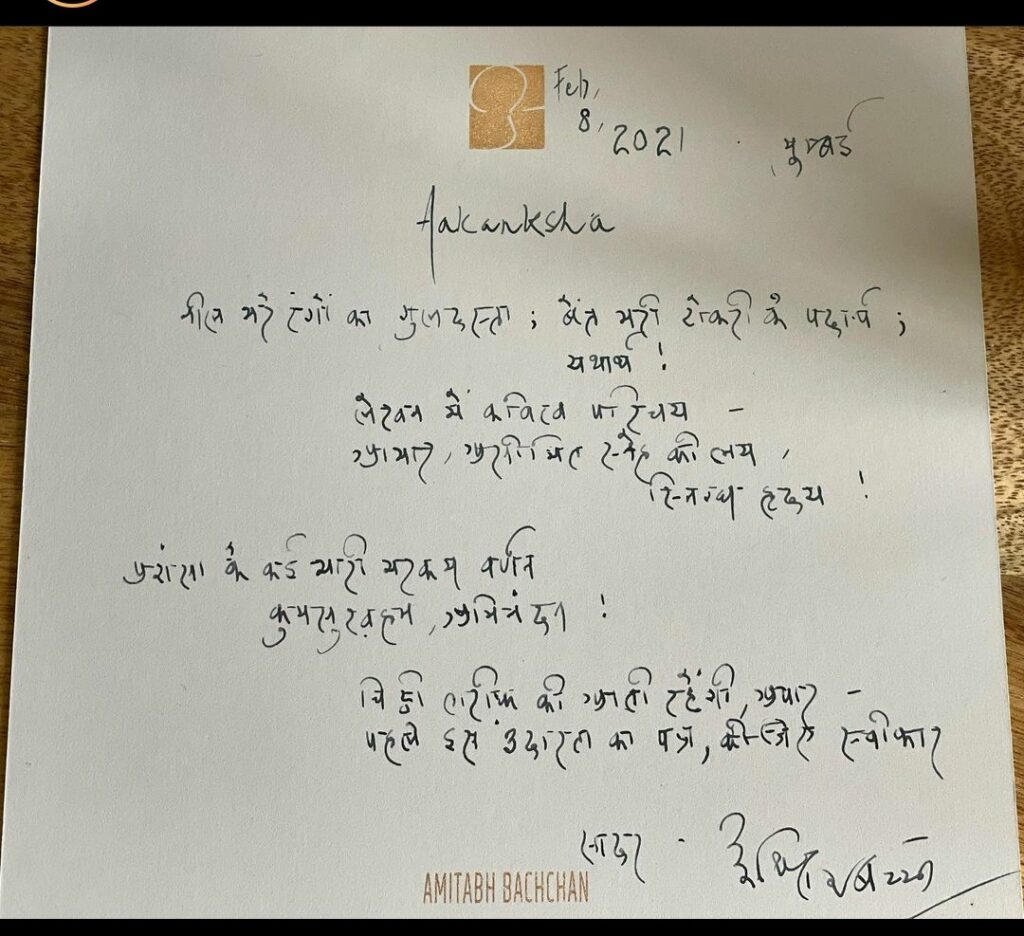 Feb, 8, 2021 मुम्बई
Aakanksha
भरे रंगों का गुलदस्ता ; बेंत भरी टोकरी के पदार्थ ;
यथार्थ !
लेखन में कवित्व परिचय -
आभार, अपरिमित स्नेह की लय ,
स्निग्ध हृदय !
प्रशंसा के कई भारी भरकम वर्णन
अभिनंदन !
चिट्ठी तारीफ़ की आती रहेंगी, अपार -
पहले इस उदारता का पत्र, स्वीकार
सादर
AMITABH BACHCHAN